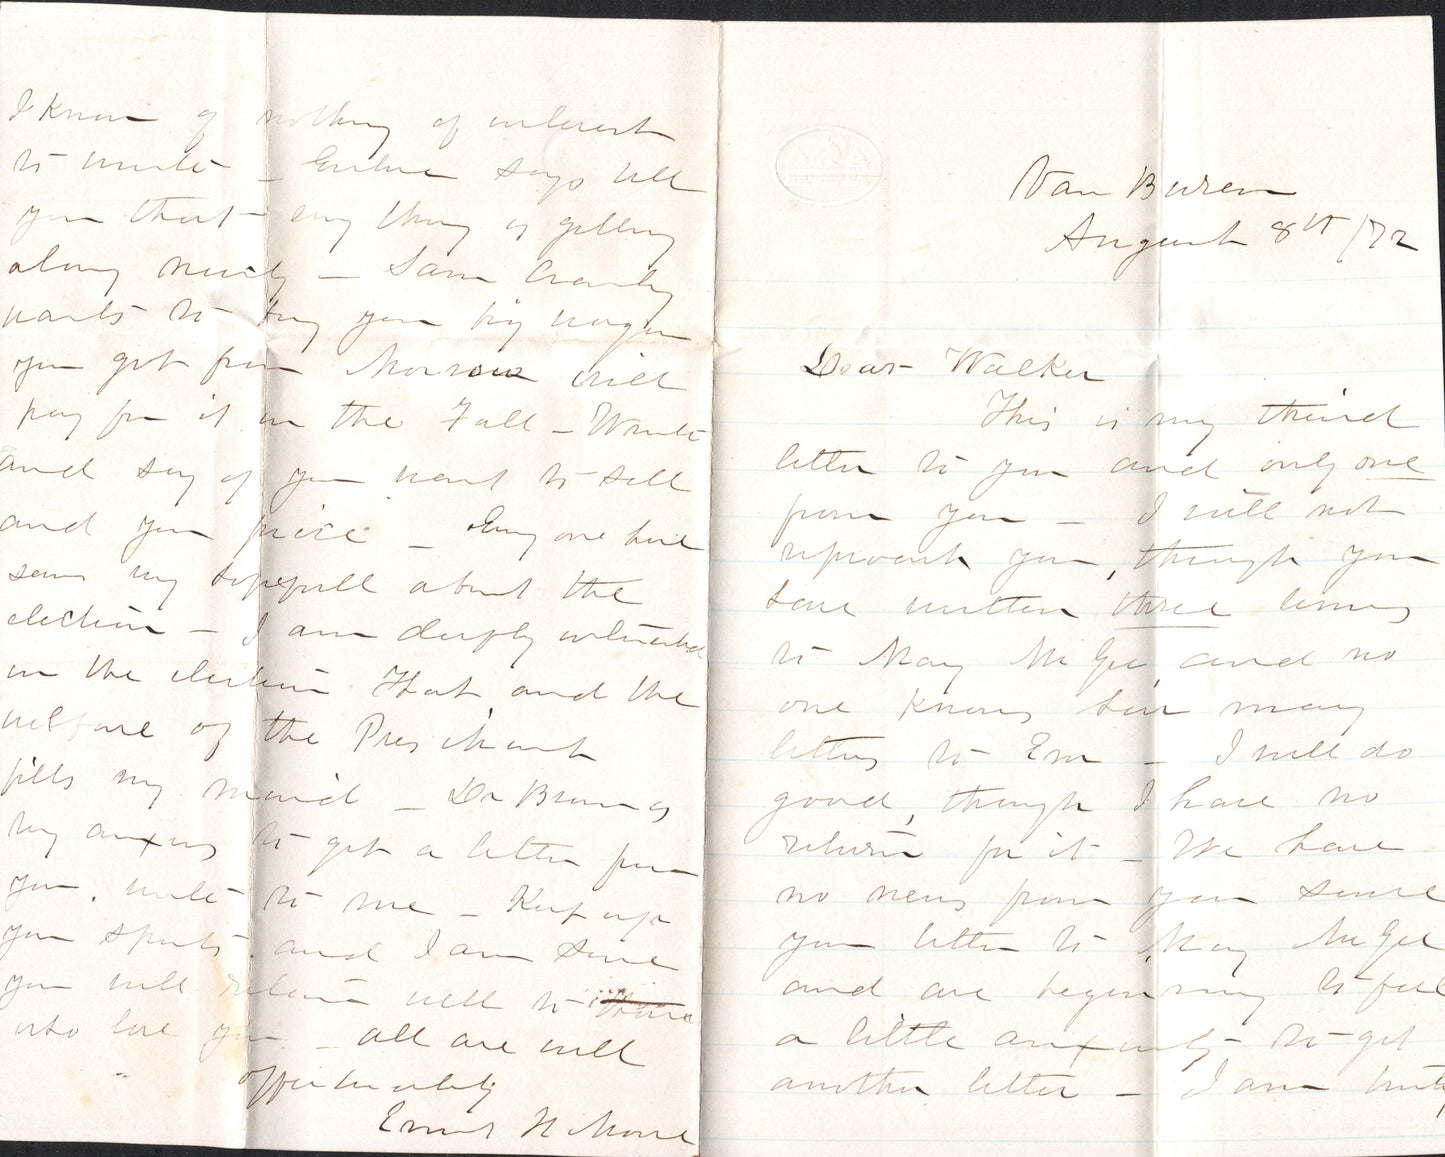 Van Buren
August 8th /72
Dear Walker
This is my third
letter to you and only one
from you – I will not
reproach you, though you
have written three times
to May McGee and no
one knows how many
letters to Em – I will do
good, though I have no
return for it – We have
no news from you since
your letter to May McGee
and are beginning to feel
a little anxiety to get
another letter – I am
I know of nothing of interest
to write – says tell
you that every thing is getting
along nicely – Sam
wants to buy your big wagon
you got from Morrow will
pay for it in the Fall – Write
and say if you want to sell
and your price – Every one here
seems very hopefull about the
election – I am deeply interested
in the election That and the
welfare of the President
fills my mind – Dr Brown is
very anxious to get a letter from
you, write to me – Keep up
your spirits and I am sure
you will return well to those
who love you – all are well
affectionately